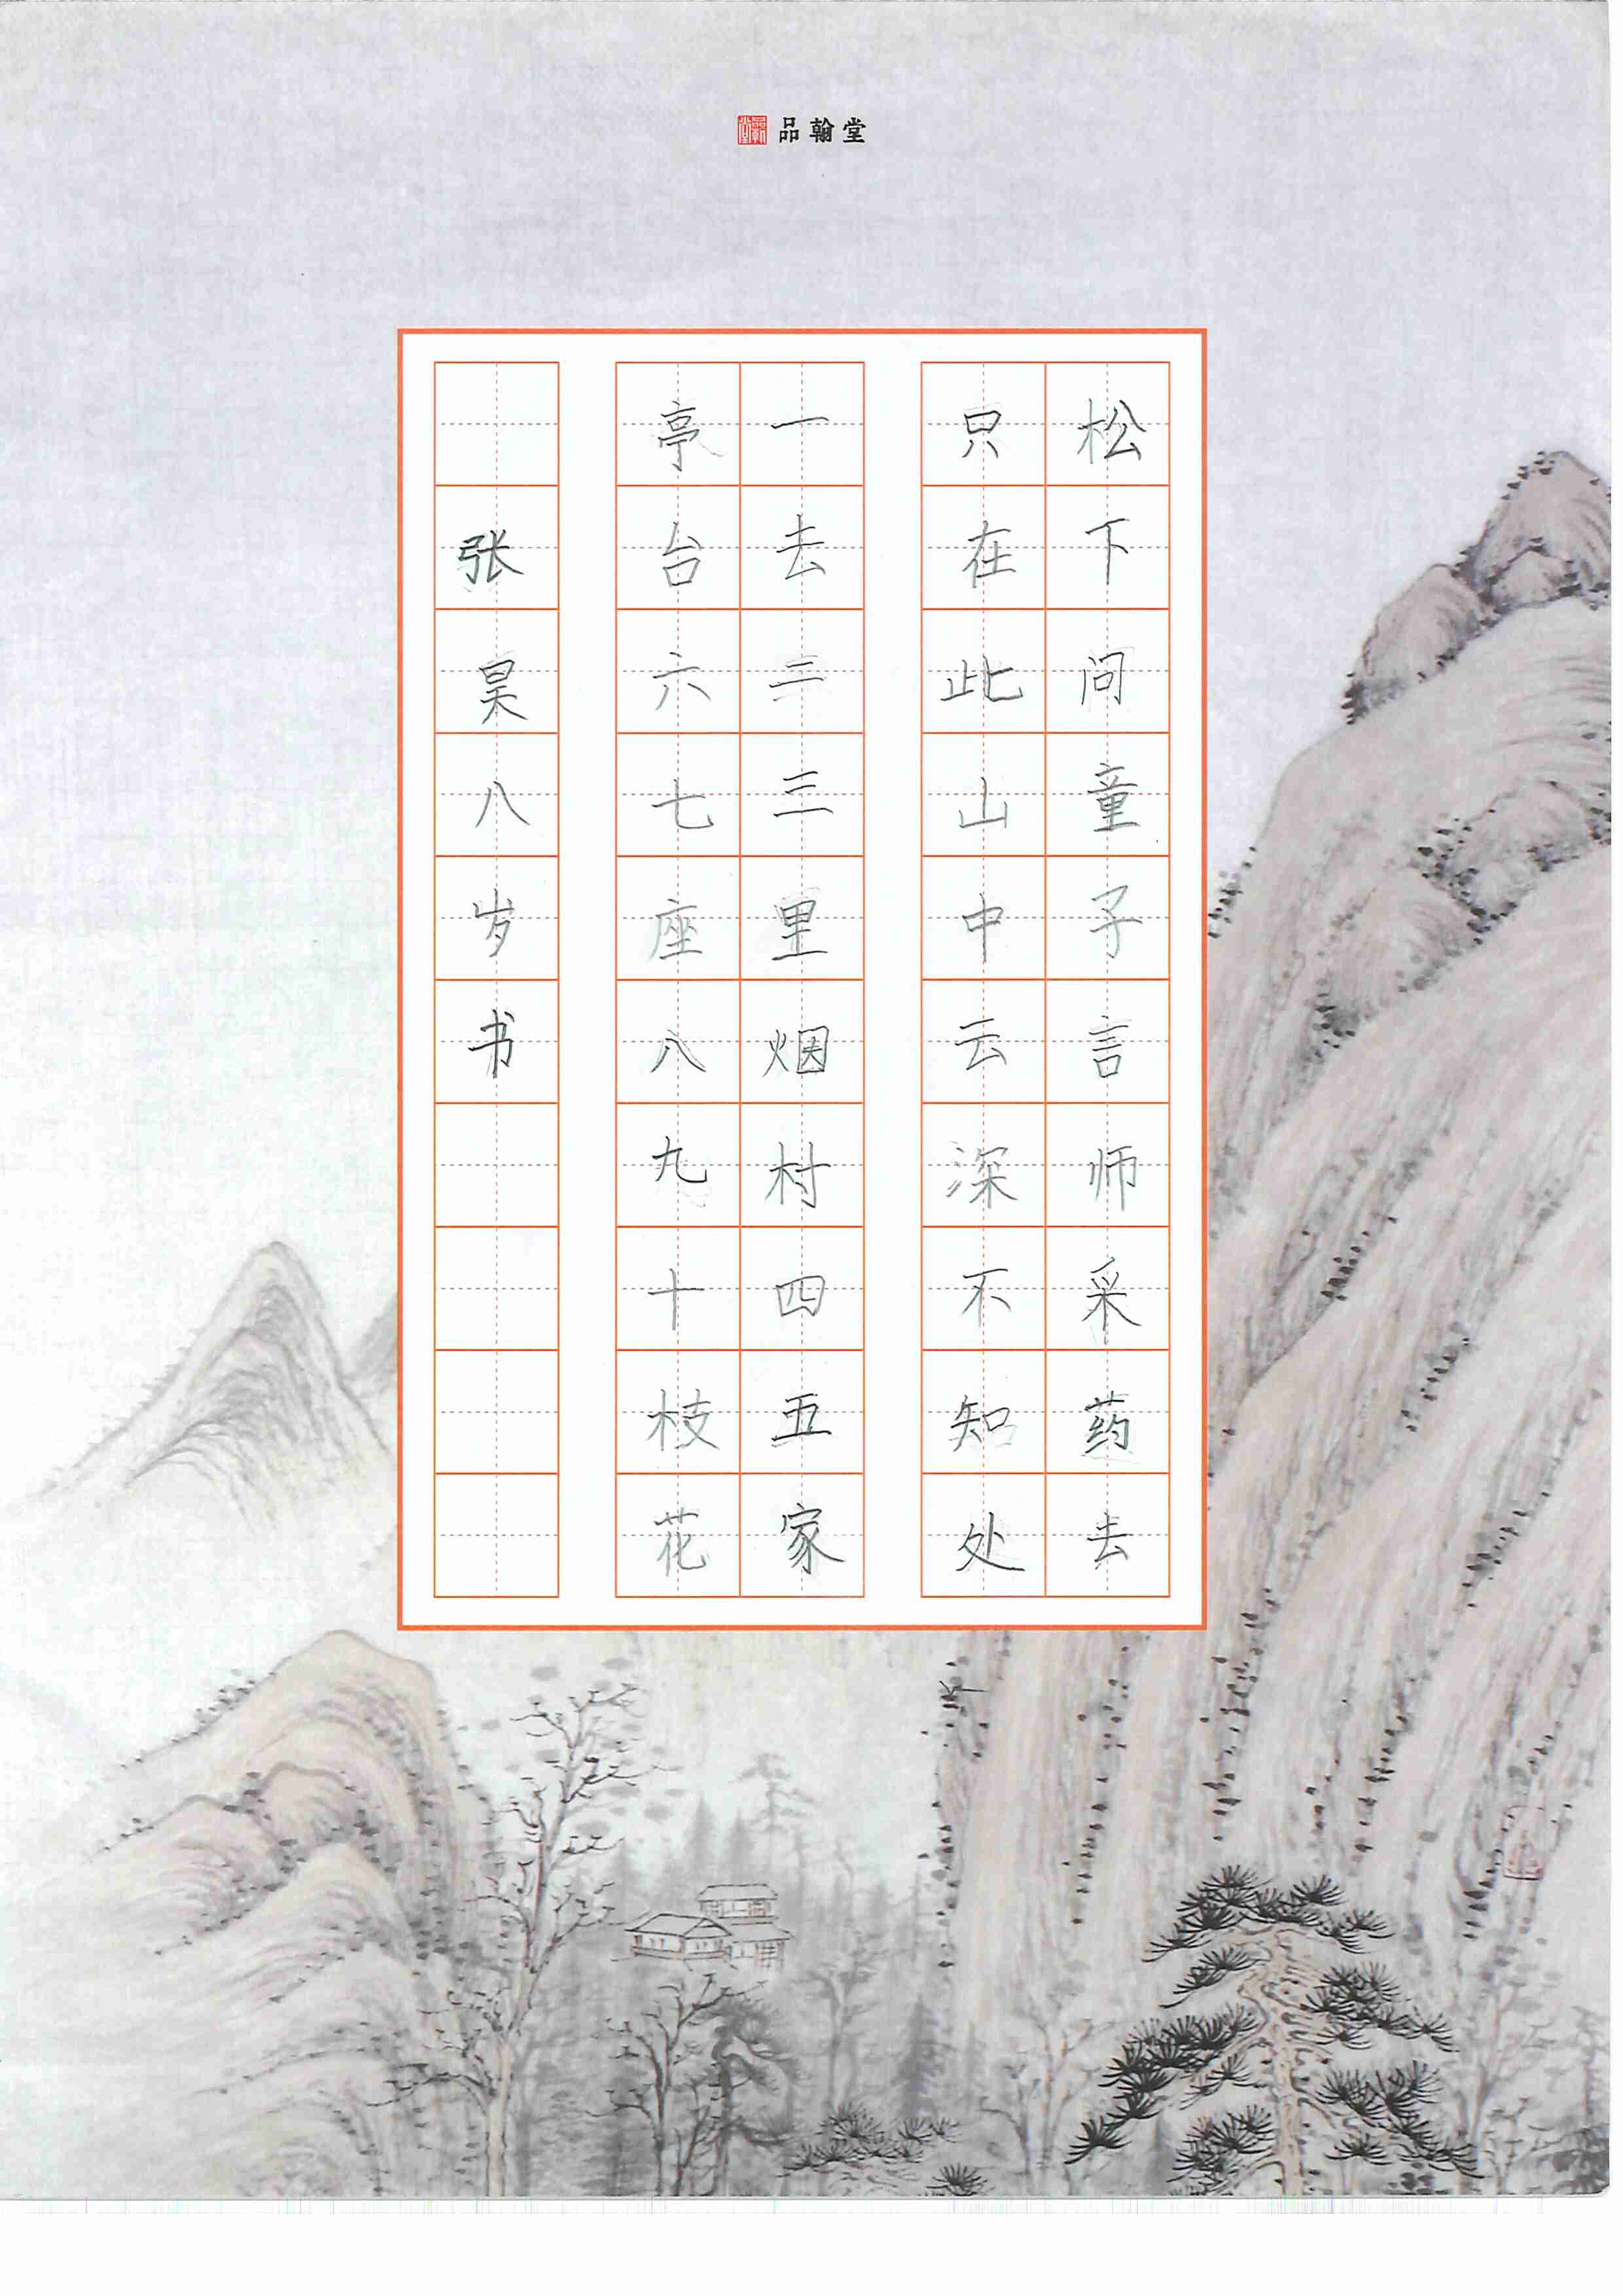 品翰堂
松下问童子言师采药去
只在此山中云深不知处
一去二三里烟村四五家
亭台六七座八九十枝花
张昊八岁书